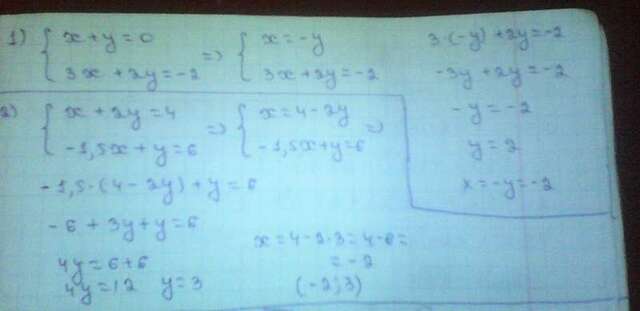 1) { x+y=0 => { x=-y 3·(-y)+2y=-2
3x+2y=-2 3x+2y=-2 -3y+2y=-2
-y=-2
y=2
x=-y=-2
2) { x+2y=4 => { x=4-2y =>
-1,5x+y=6 -1,5x+y=6
-1,5·(4-2y)+y=6
-6+3y+y=6
4y=6+6
4y=12 y=3
x=4-2·3=4-6=
=-2
(-2;3)